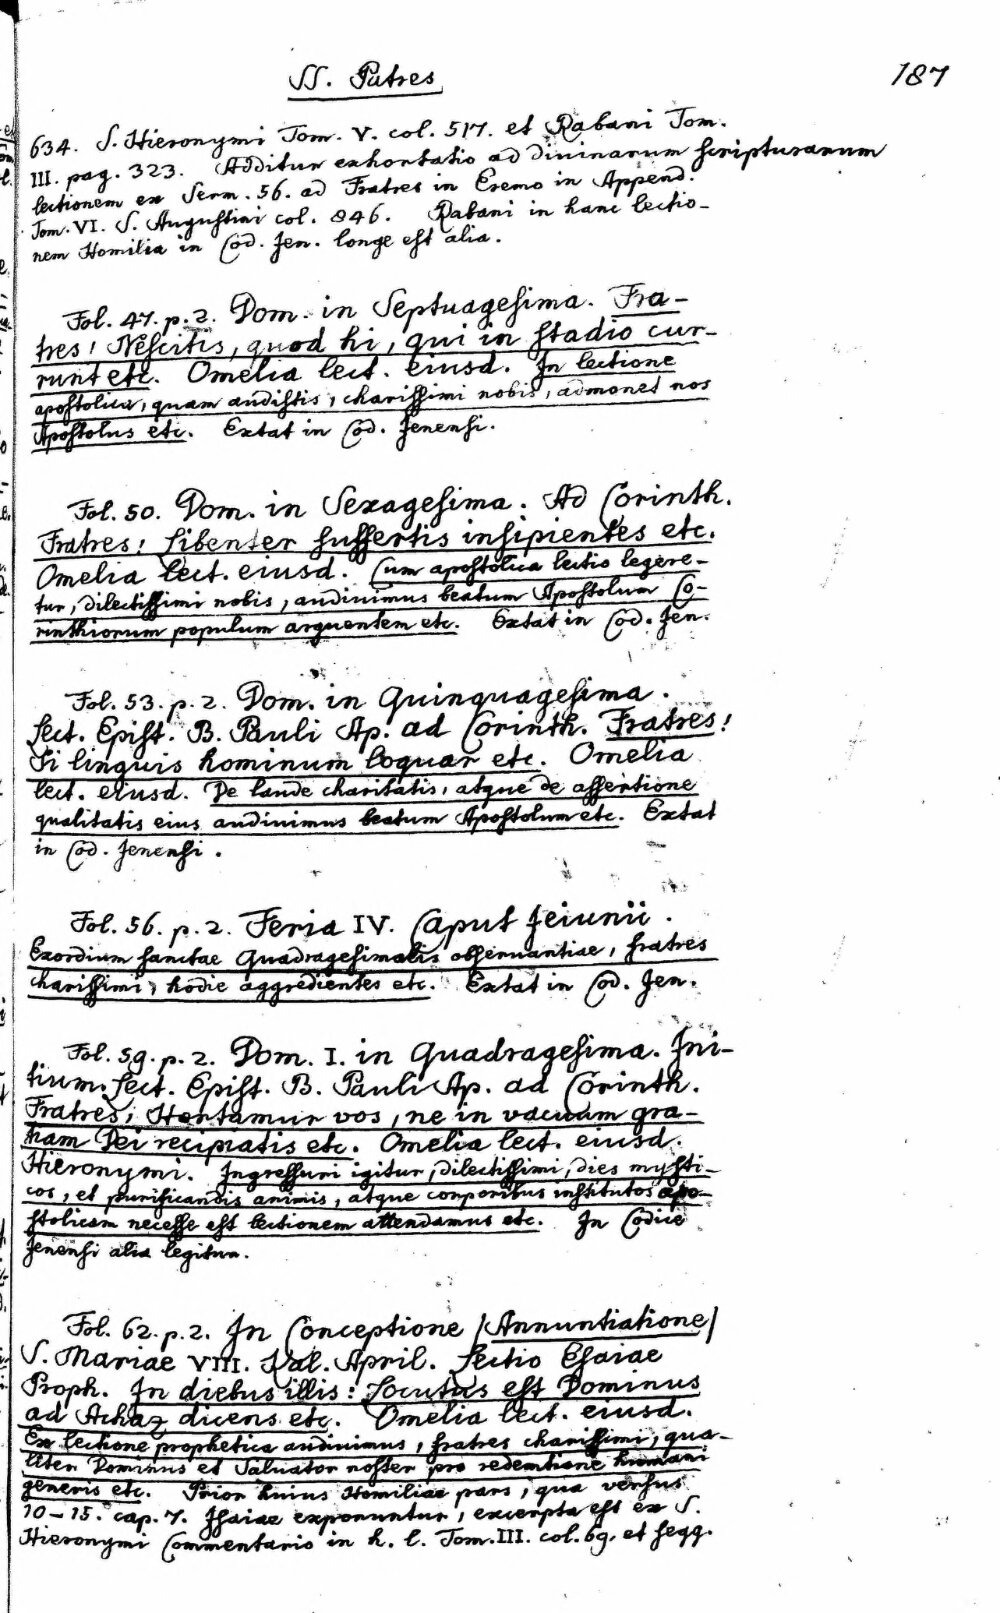 SS. Patres
187
634. S. Hieronymi Tom. V. col. 517. et Rabani Tom.
III. pag. 323. Additur exhortatio ad divinarum scripturarum
lectionem ex Serm. 56. ad Fratres in Eremo in Append.
Tom. VI. S. Augustini col. 846. Rabani in hanc lectio-
nem Homilia in Cod. Jen. longe est alia.
Fol. 47. p. 2. Dom. in Septuagesima. Fra-
tres! Nescitis, quod hi, qui in stadio cur-
runt etc. Omelia lect. eiusd. In lectione
apostolica, quam audistis, charissimi nobis, admonet nos
Apostolus etc. Extat in Cod. Jenensi.
Fol. 50. Dom. in Sexagesima. Ad Corinth.
Fratres! Libenter suffertis insipientes etc.
Omelia lect. eiusd. Cum apostolica lectio legere-
tur, dilectissimi nobis, audivimus beatum Apostolum Co-
rinthiorum populum arguentem etc. Extat in Cod. Jen.
Fol. 53. p. 2. Dom. in Quinquagesima.
Lect. Epist. B. Pauli Ap. ad Corinth. Fratres!
Si linguis hominum loquar etc. Omelia
lect. eiusd. De laude charitatis, atque de assertione
qualitatis eius audivimus beatum Apostolum etc. Extat
in Cod. Jenensi.
Fol. 56. p. 2. Feria IV. Caput Jeiunii.
Exordium sanctae Quadragesimalis observantiae, fratres
charissimi, hodie aggredientes etc. Extat in Cod. Jen.
Fol. 59. p. 2. Dom. I. in Quadragesima. Ini-
tium. Lect. Epist. B. Pauli Ap. ad Corinth.
Fratres, Hortamur vos, ne in vacuum gra-
tiam Dei recipiatis etc. Omelia lect. eiusd.
Hieronymi. Ingressuri igitur, dilectissimi, dies mysti-
cos, et purificandis animis, atque corporibus institutos apo-
stolicam necesse est lectionem attendamus etc. In Codice
Jenensi alia legitur.
Fol. 62. p. 2. In Conceptione /Annuntiatione/
S. Mariae VIII. Kal. April. Lectio Esaiae
Proph. In diebus illis: Locutus est Dominus
ad Achaz dicens etc. Omelia lect. eiusd.
Ex lectione prophetica audivimus, fratres charissimi, qua-
liter Dominus et Salvator noster pro redemtione humani
generis etc. Prior huius Homiliae pars, qua versus
10-15. cap. 7. Isaiae exponuntur, excerpta est ex S.
Hieronymi Commentario in h. l. Tom. III. col. 69. et seqq.